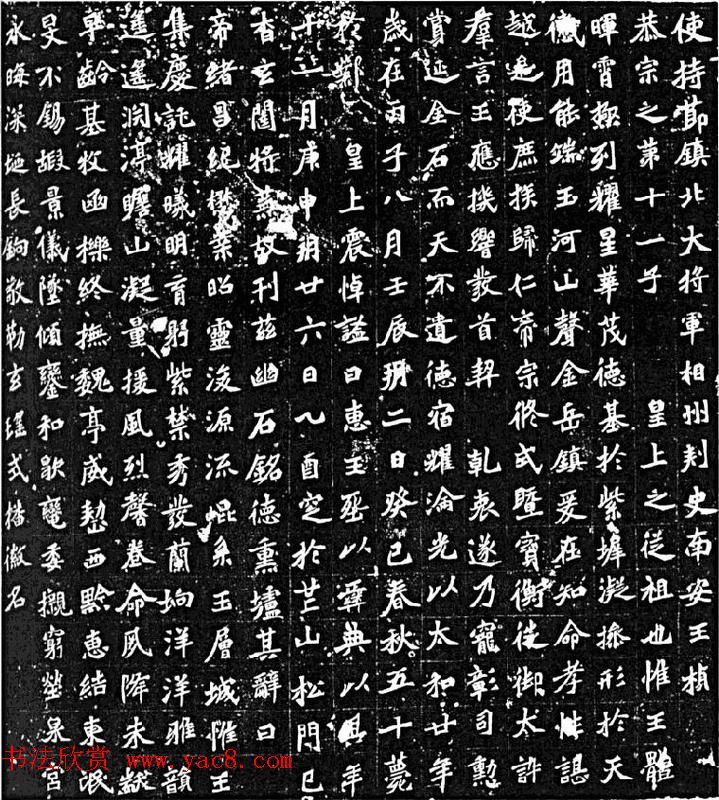 使持節鎮北大將軍相州刺史南安王楨
恭宗之第十一子 皇上之從祖也惟王體
暉霄極列耀星華茂德基於紫墀凝操形於天
儀用能端玉河山聲金岳鎮爰在知命孝性諶
越是使庶族歸仁帝宗攸式暨寶衡徙御太訊
羣言王應機響發首契 乾衷遂乃寵彰司勳
賞延金石而天不遺德宿耀淪光以太和廿年
歲在丙子八月壬辰朔二日癸巳春秋五十薨
於鄴 皇上震悼謚曰惠王葬以彝典以其年
十一月庚申朔廿六日乙酉窆於芒山松門已
杳玄闥將蕪故刊茲幽石銘德熏壚其辭曰
帝緒昌紀懋業昭靈浚源流崐系玉層城惟王
集慶託耀曦明育躬紫禁秀發蘭坰洋洋雅韻
遙遙淵渟瞻山凝量援風烈馨卷命夙降未黻
早齡基牧函櫟終撫魏亭威整西黔惠結東氓
旻不錫嘏景儀墜傾鑾和歇轡委櫬窮塋泉宮
永晦深埏長鉤敬勒玄瑤式播徽名
书法欣赏 www.yac8.com